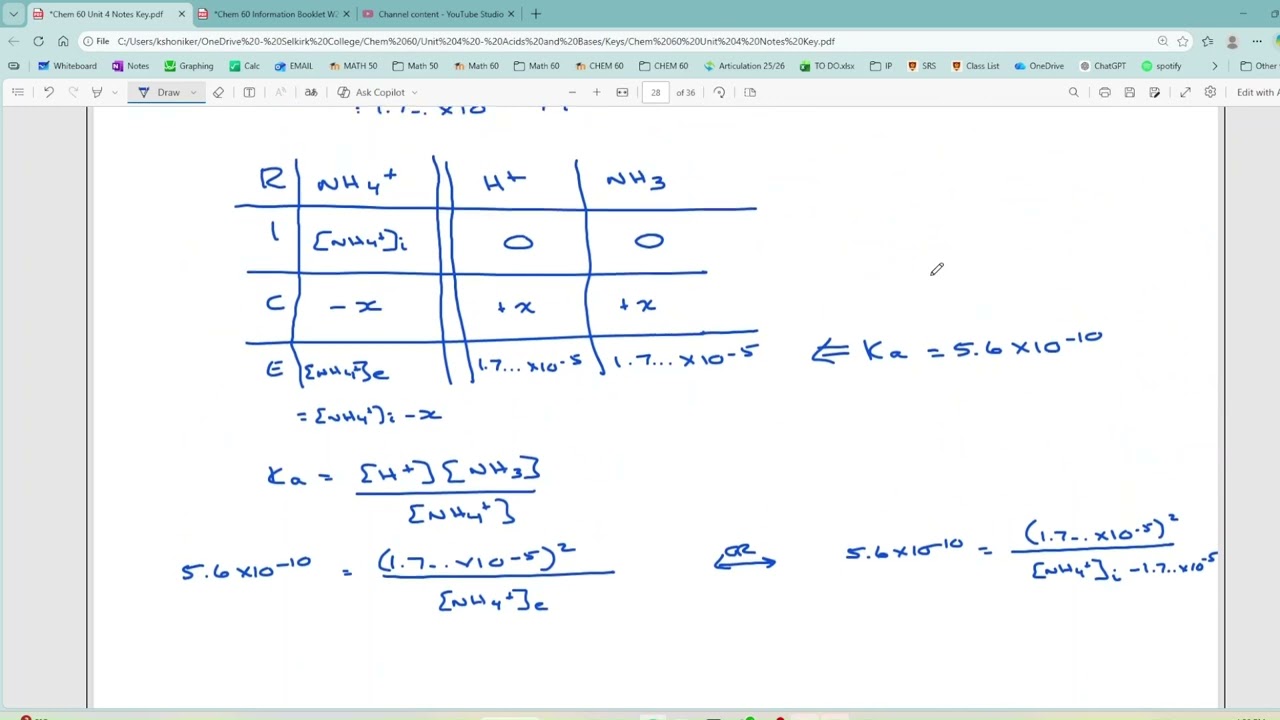 *Chem 60 Unit 4 Notes Key.pdf
*Chem 60 Information Booklet W2
Channel content - YouTube Studio
File
C:/Users/kshoniker/OneDrive%20-%20Selkirk%20College/Chem%2060/Unit%204%20-%20Acids%20and%20Bases/Keys/Chem%2060%20Unit%204%20Notes%20Key.pdf
Whiteboard Notes Graphing Calc EMAIL MATH 50 Math 50 Math 60 Math 60 CHEM 60 CHEM 60 Articulation 25/26 TO DO.xlsx IP SRS Class List OneDrive ChatGPT spotify Other
Draw Ask Copilot 28 of 36 Edit with A
R NH₄⁺ H⁺ NH₃
I [NH₄⁺]i 0 0
C -x +x +x
E [NH₄⁺]e 1.7...×10⁻⁵ 1.7...×10⁻⁵ ⇐ Ka = 5.6×10⁻¹⁰
= [NH₄⁺]i - x
Ka = [H⁺][NH₃]
[NH₄⁺]
5.6×10⁻¹⁰ = (1.7...×10⁻⁵)²
[NH₄⁺]e
OR
5.6×10⁻¹⁰ = (1.7...×10⁻⁵)²
[NH₄⁺]i - 1.7..×10⁻⁵